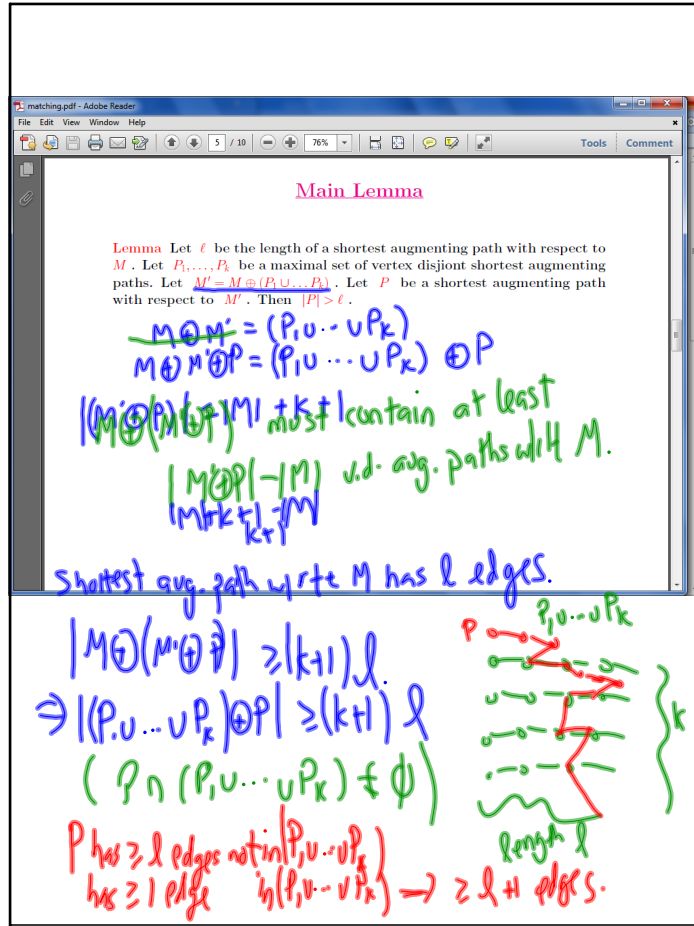 matching.pdf - Adobe Reader
File Edit View Window Help
5 / 10 76% Tools Comment
Main Lemma
Lemma Let ℓ be the length of a shortest augmenting path with respect to
M . Let P₁, . . . , Pₖ be a maximal set of vertex disjiont shortest augmenting
paths. Let M′ = M ⊕ (P₁ ∪ . . . Pₖ) . Let P be a shortest augmenting path
with respect to M′ . Then |P| > ℓ .
M ⊕ M' = (P₁ ∪ ... ∪ Pₖ)
M ⊕ M' ⊕ P = (P₁ ∪ ... ∪ Pₖ) ⊕ P
|(M' ⊕ P)| = |M| + k + 1
M ⊕ (M' ⊕ P) must contain at least
|M' ⊕ P| - |M| v.d. aug. paths w.r.t M.
|M| + k + 1 - |M|
k+1
Shortest aug. path w.r.t M has l edges.
|M ⊕ (M' ⊕ P)| ≥ (k+1) l.
⇒ |(P₁ ∪ ... ∪ Pₖ) ⊕ P| ≥ (k+1) l
(P ∩ (P₁ ∪ ... ∪ Pₖ) ≠ ϕ)
P has ≥ l edges not in (P₁ ∪ ... ∪ Pₖ)
has ≥ 1 edge in (P₁ ∪ ... ∪ Pₖ) → ≥ l + 1 edges.
P₁ ∪ ... ∪ Pₖ
P
k
length l